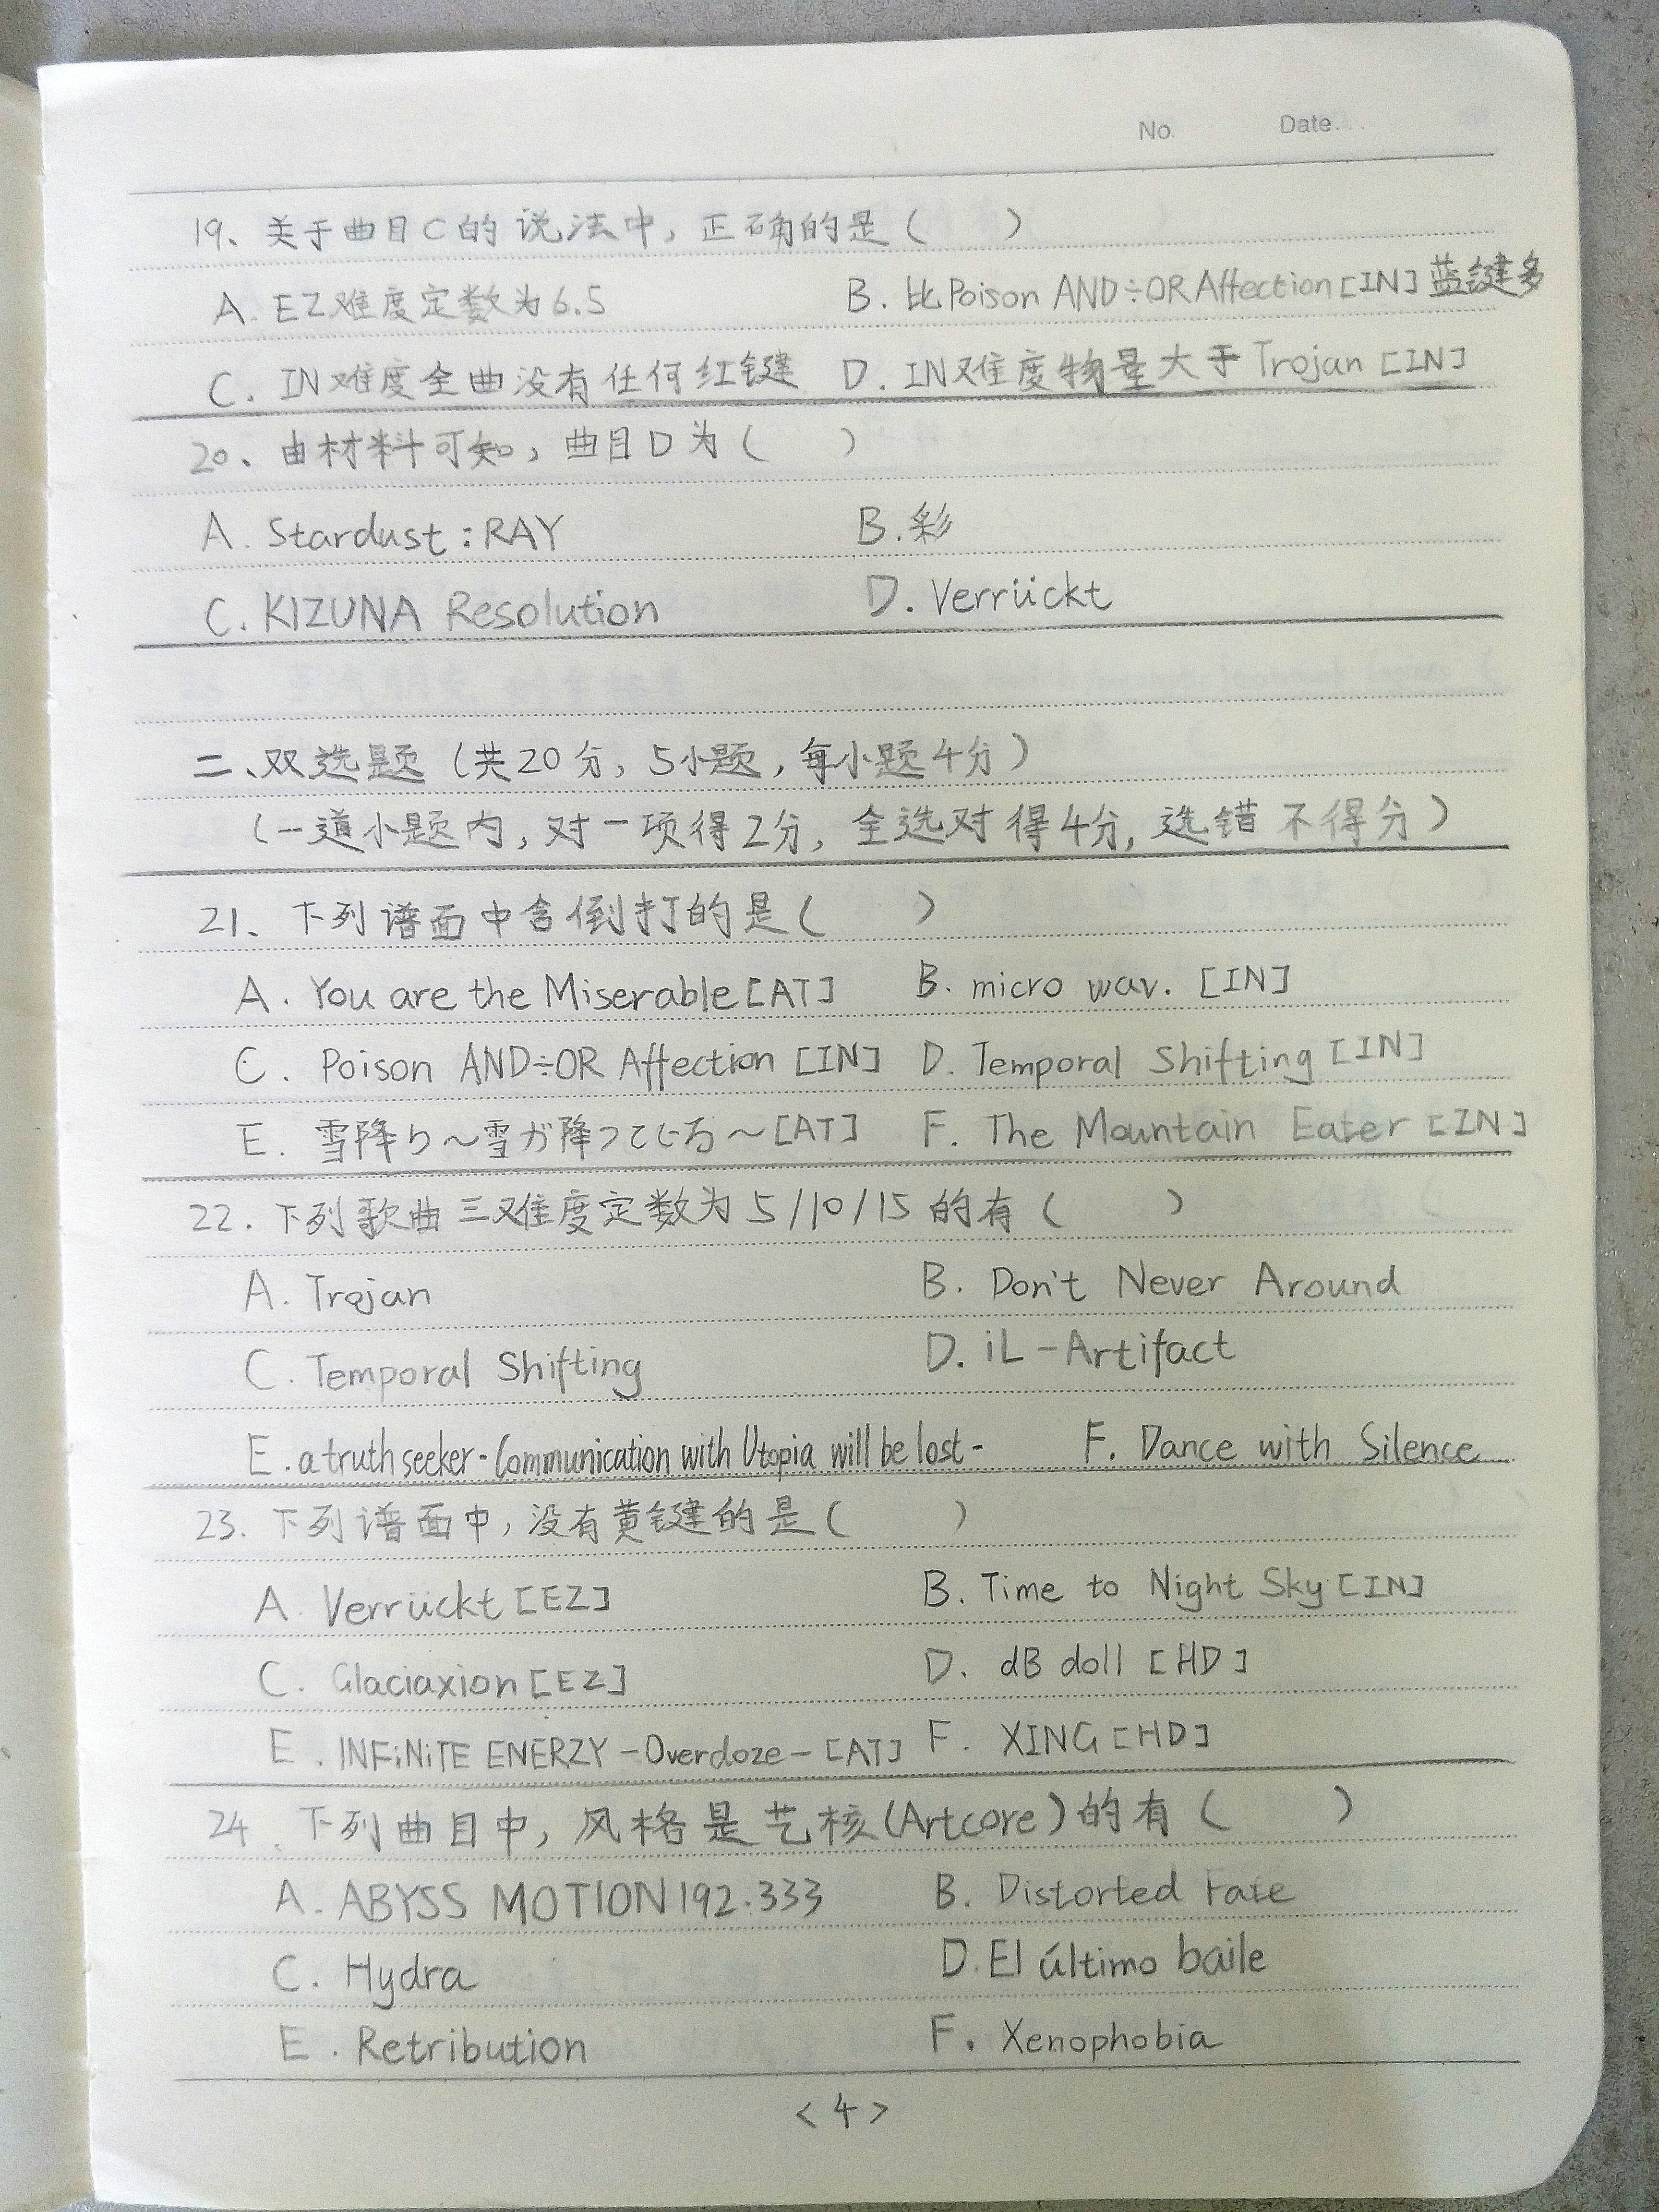 No. Date...
19、关于曲目C的说法中，正确的是（ ）
A. EZ难度定数为6.5 B. 比Poison AND÷OR Affection[IN]蓝键多
C. IN难度全曲没有任何红键 D. IN难度物量大于Trojan [IN]
20、由材料可知，曲目D为（ ）
A. Stardust:RAY B.彩
C. KIZUNA Resolution D. Verrückt
二、双选题（共20分，5小题，每小题4分）
（一道小题内，对一项得2分，全选对得4分，选错不得分）
21、下列谱面中含倒打的是（ ）
A. You are the Miserable[AT] B. micro wav. [IN]
C. Poison AND÷OR Affection [IN] D. Temporal Shifting [IN]
E. 雪降り～雪が降ってじる～[AT] F. The Mountain Eater [IN]
22. 下列歌曲三难度定数为5/10/15的有（ ）
A. Trojan B. Don't Never Around
C. Temporal Shifting D. iL-Artifact
E. a truth seeker-Communication with Utopia will be lost- F. Dance with Silence
23. 下列谱面中，没有黄键的是（ ）
A. Verrückt [EZ] B. Time to Night Sky [IN]
C. Glaciaxion [EZ] D. dB doll [HD]
E. INFiNiTE ENERZY -Overdoze- [AT] F. XING [HD]
24. 下列曲目中，风格是艺核(Artcore)的有（ ）
A. ABYSS MOTION 192.333 B. Distorted Fate
C. Hydra D. El último baile
E. Retribution F. Xenophobia
<4>